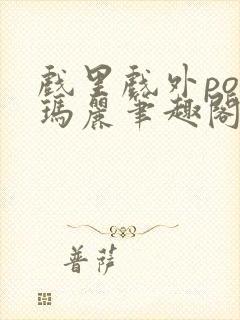 戲里戲外po
瑪麗筆趣閣
普薩